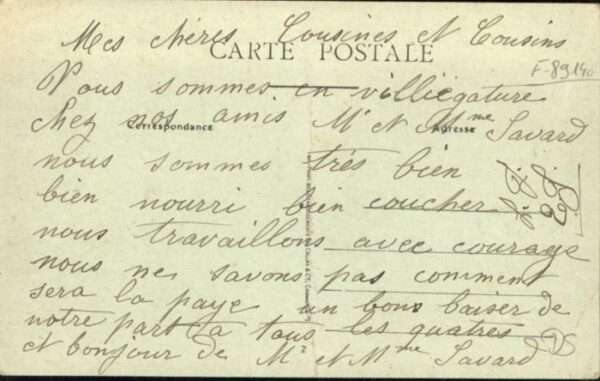 Mes chéres Cousines et Cousins
CARTE POSTALE
F-89140
Nous sommes en villiegature
chez nos amis Mr et Mme Savard
Correspondance
Adresse
nous sommes très bien
bien nourri bien coucher
nous travaillons avec courage
nous ne savons pas comment
sera la paye un bons baiser de
notre part a tous les quatres
et bonjour de Mr et Mme Savard
DS